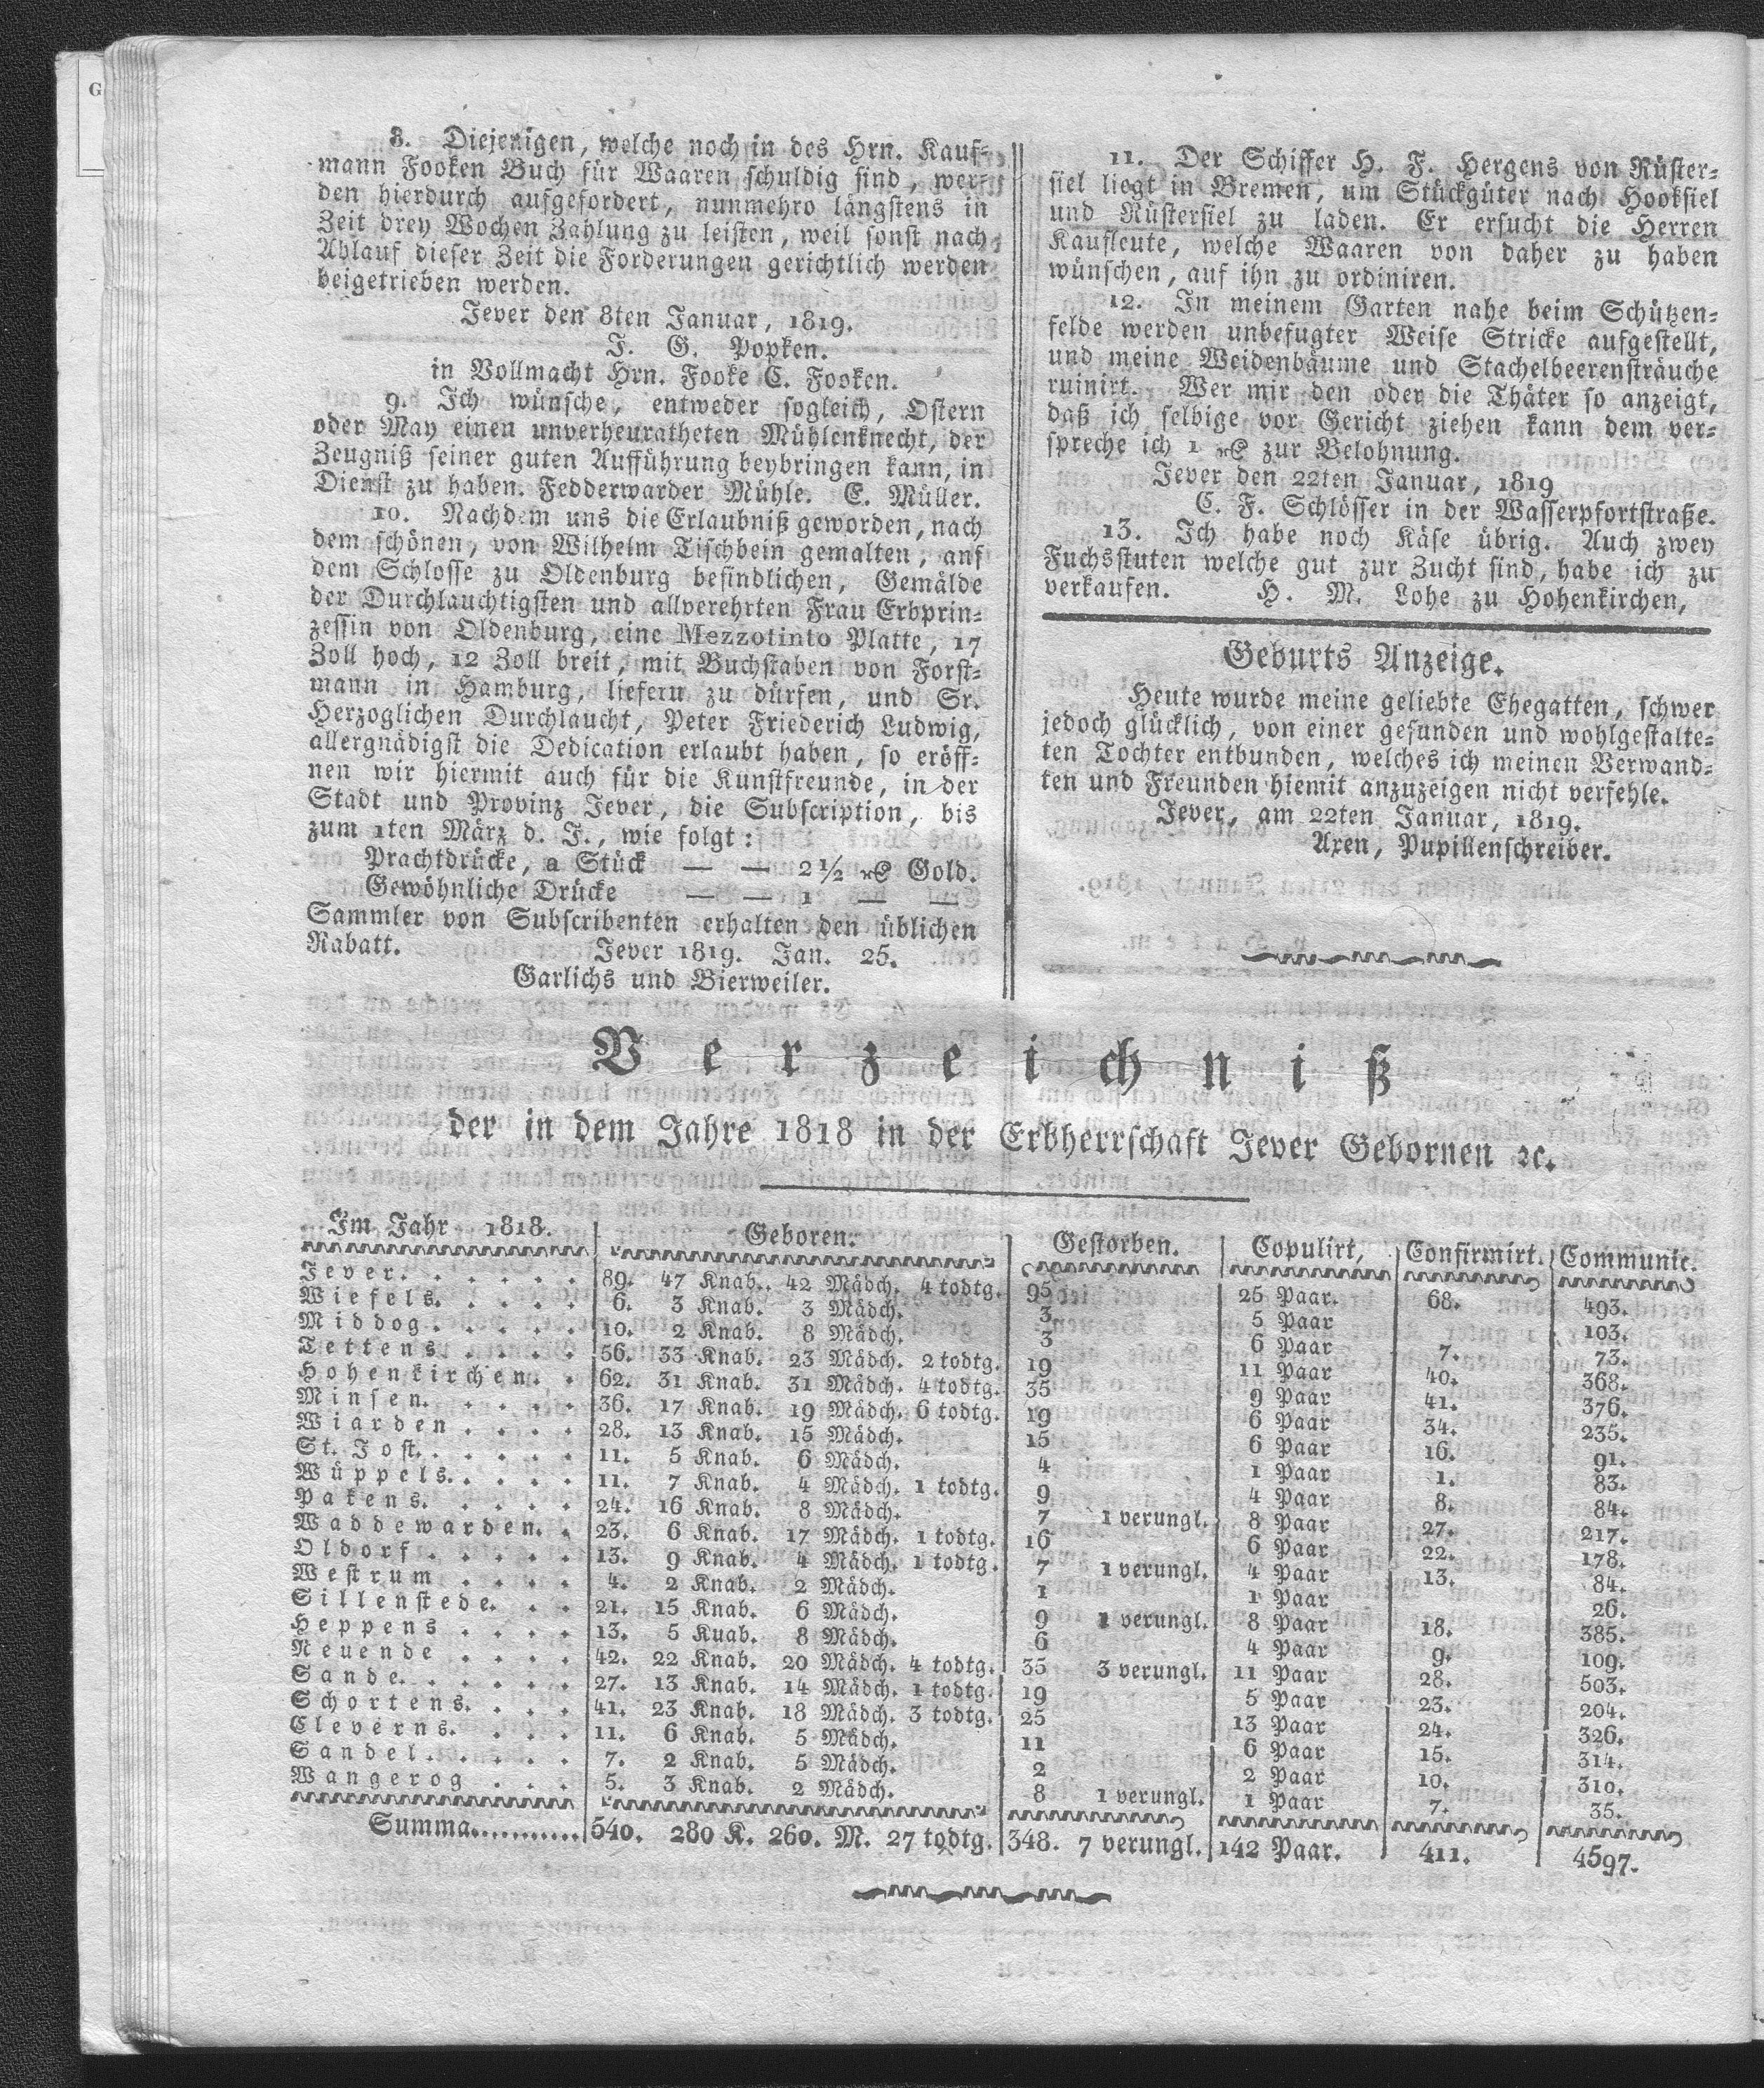 8. Diejenigen, welche noch in des Hrn. Kauf-
mann Fooken Buch für Waaren schuldig sind, wer-
den hierdurch aufgefordert, nunmehro längstens in
Zeit drey Wochen Zahlung zu leisten, weil sonst nach
Ablauf dieser Zeit die Forderungen gerichtlich werden
beigetrieben werden.
Jever den 8ten Januar, 1819.
J. G. Popken.
in Vollmacht Hrn. Fooke C. Fooken.
9. Ich wünsche, entweder sogleich, Ostern
oder May einen unverheuratheten Mühlenknecht, der
Zeugniß seiner guten Aufführung beybringen kann, in
Dienst zu haben. Fedderwarder Mühle. E. Müller.
10. Nachdem uns die Erlaubniß geworden, nach
dem schönen, von Wilhelm Tischbein gemalten, auf
dem Schlosse zu Oldenburg befindlichen, Gemälde
der Durchlauchtigsten und allverehrten Frau Erbprin-
zessin von Oldenburg, eine Mezzotinto Platte, 17
Zoll hoch, 12 Zoll breit, mit Buchstaben von Forst-
mann in Hamburg, liefern zu dürfen, und Sr.
Herzoglichen Durchlaucht, Peter Friederich Ludwig,
allergnädigst die Dedication erlaubt haben, so eröff-
nen wir hiermit auch für die Kunstfreunde, in der
Stadt und Provinz Jever, die Subscription, bis
zum 1ten März d. J., wie folgt:
Prachtdrücke, a Stück — — 2½ rℓ Gold.
Gewöhnliche Drücke — — 1 — —
Sammler von Subscribenten erhalten den üblichen
Rabatt. Jever 1819. Jan. 25.
Garlichs und Bierweiler.
11. Der Schiffer H. F. Hergens von Rüster-
siel liegt in Bremen, um Stückgüter nach Hooksiel
und Rüstersiel zu laden. Er ersucht die Herren
Kaufleute, welche Waaren von daher zu haben
wünschen, auf ihn zu ordiniren.
12. In meinem Garten nahe beim Schützen-
felde werden unbefugter Weise Stricke aufgestellt,
und meine Weidenbäume und Stachelbeerensträuche
ruinirt. Wer mir den oder die Thäter so anzeigt,
daß ich selbige vor Gericht ziehen kann dem ver-
spreche ich 1 rℓ zur Belohnung.
Jever den 22ten Januar, 1819
C. F. Schlösser in der Wasserpfortstraße.
13. Ich habe noch Käse übrig. Auch zwey
Fuchsstuten welche gut zur Zucht sind, habe ich zu
verkaufen. H. M. Lohe zu Hohenkirchen,
Geburts Anzeige.
Heute wurde meine geliebte Ehegatten, schwer
jedoch glücklich, von einer gesunden und wohlgestalte-
ten Tochter entbunden, welches ich meinen Verwand-
ten und Freunden hiemit anzuzeigen nicht verfehle.
Jever, am 22ten Januar, 1819.
Axen, Pupillenschreiber.
Verzeichniß
der in dem Jahre 1818 in der Erbherrschaft Jever Gebornen ꝛc.
Im Jahr 1818. Geboren. Gestorben. Copulirt, Confirmirt. Communic.
Jever. . . . . . . 89. 47 Knab. 42 Mädch. 4 todtg. 95 25 Paar. 68. 493.
Wiefels. . . . . 6. 3 Knab. 3 Mädch. 3 5 Paar 103.
Middog. . . . . . 10. 2 Knab. 8 Mädch. 3 6 Paar 7. 73.
Tettens. . . . . 56. 33 Knab. 23 Mädch. 2 todtg. 19 11 Paar 40. 368.
Hohenkirchen. . 62. 31 Knab. 31 Mädch. 4 todtg. 35 9 Paar 41. 376.
Minsen. . . . . . 36. 17 Knab. 19 Mädch. 6 todtg. 19 6 Paar 34. 235.
Wiarden . . . . 28. 13 Knab. 15 Mädch. 15 6 Paar 16. 91.
St. Jost. . . . . . 11. 5 Knab. 6 Mädch. 4 1 Paar 1. 83.
Wüppels. . . . . 11. 7 Knab. 4 Mädch. 1 todtg. 9 4 Paar 8. 84.
Pakens. . . . . . 24. 16 Knab. 8 Mädch. 7 1 verungl. 8 Paar 27. 217.
Waddewarden. . 23. 6 Knab. 17 Mädch. 1 todtg. 16 6 Paar 22. 178.
Oldorf . . . . . 13. 9 Knab. 4 Mädch. 1 todtg. 7 1 verungl. 4 Paar 13. 84.
Westrum . . . . 4. 2 Knab. 2 Mädch. 1 1 Paar 26.
Sillenstede. . . 21. 15 Knab. 6 Mädch. 9 1 verungl. 8 Paar 18. 385.
Heppens . . . . 13. 5 Kuab. 8 Mädch. 6 4 Paar 9. 109.
Neuende . . . . 42. 22 Knab. 20 Mädch. 4 todtg. 35 3 verungl. 11 Paar 28. 503.
Sande. . . . . . 27. 13 Knab. 14 Mädch. 1 todtg. 19 5 Paar 23. 204.
Schortens. . . . 41. 23 Knab. 18 Mädch. 3 todtg. 25 13 Paar 24. 326.
Cleverns. . . . . 11. 6 Knab. 5 Mädch. 11 6 Paar 15. 314.
Sandel. . . . . . 7. 2 Knab. 5 Mädch. 2 2 Paar 10. 310.
Wangerog . . . 5. 3 Knab. 2 Mädch. 8 1 verungl. 1 Paar 7. 35.
Summa........... 540. 280 K. 260. M. 27 todtg. 348. 7 verungl. 142 Paar. 411. 4597.